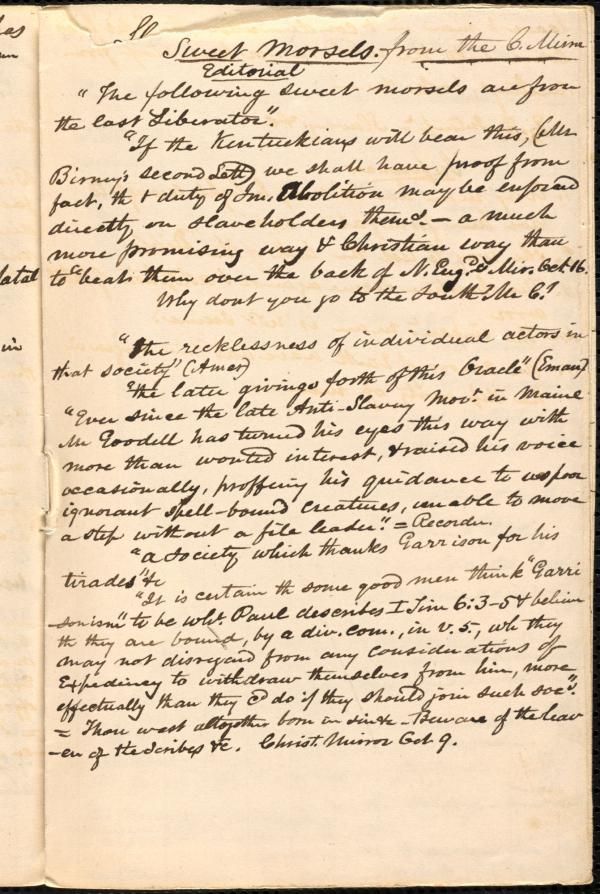 50
Sweet Morsels. from the C. Mirro
Editorial
"The following sweet morsels are from
the last Liberator".
"If the Kentuckians will bear this, (Mr
Birney's second Lett) we shall have proof from
fact, tht duty of Im. Abolition may be enforced
directly on slaveholders thems. — a much
more promising way & Christian way than
to beat them over the back of N. Engd" Mir. Oct 16.
Why dont you go to the South? Mr C!
"The recklessness of individual actors in
that society" (Amer)
"the later givings forth of this Oracle" (Eman)
"Ever since the late Anti-Slavery Movt. in Maine
Mr Goodell has turned his eyes this way with
more than wonted interest, & raised his voice
occasionally, proffering his guidance to us poor
ignorant spell-bound creatures, unable to move
a step without a file leader". = Recorder.
"a Society which thanks Garrison for his
tirades" &c
"It is certain th some good men think "Garri
-sonism" to be wht. Paul describes I Tim 6:3-5 & believe
th they are bound, by a div. com., in v. 5., wh they
may not disregard from any considerations of
Expediency to withdraw themselves from him, more
effectually than they cd do if they should join such soc".
= Thou wast altogether born in sin &c - Beware of the leav
-en of the Scribes &c. Christ. Mirror Oct 9.
las
fatal
in